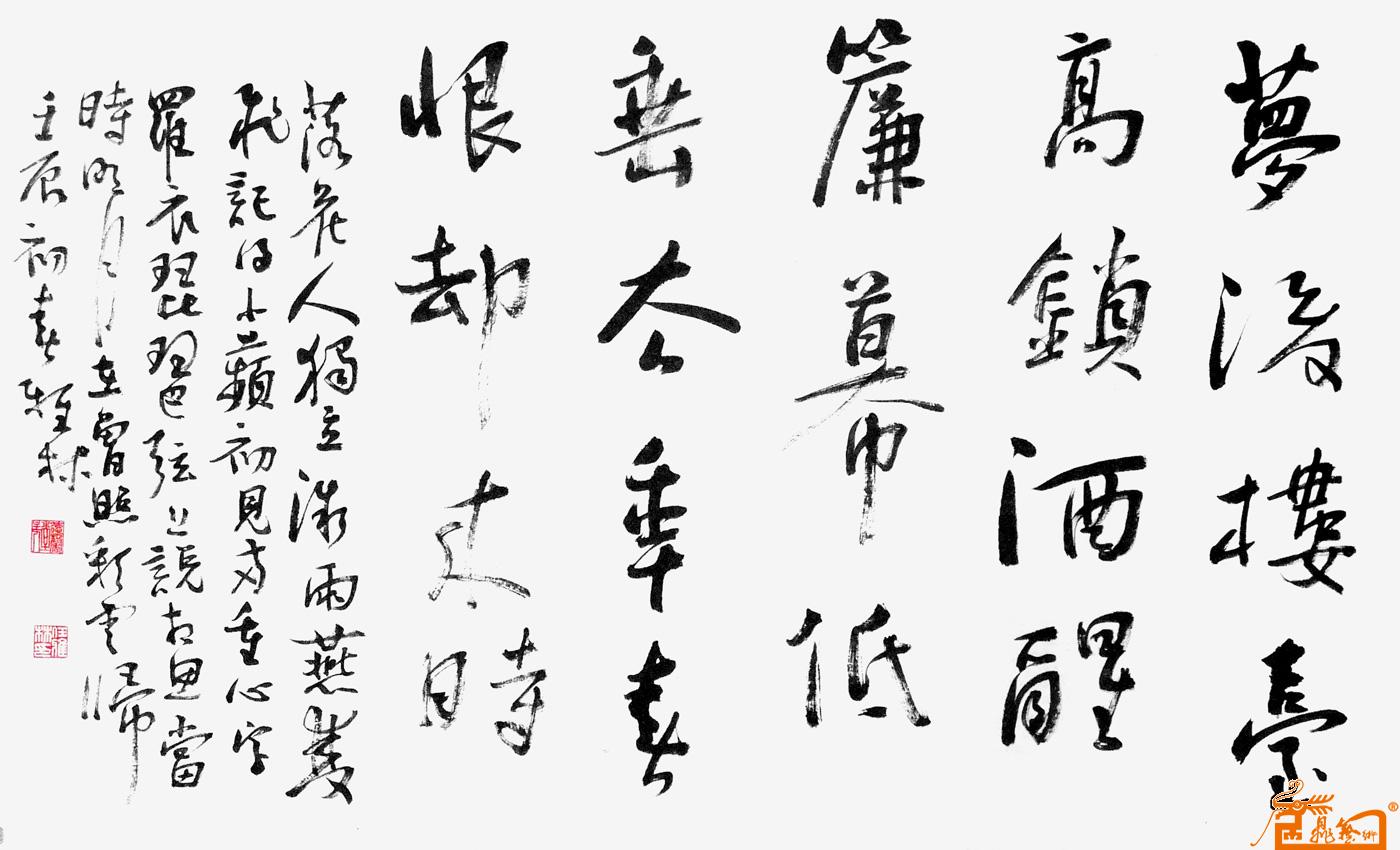 夢後樓臺
高鎖酒醒
簾幕低
垂去年春
恨却来時
落花人獨立微雨燕雙
飛記得小蘋初見兩重心字
羅衣琵琶弦上說相思當
時明月在曾照彩雲歸
壬辰初春